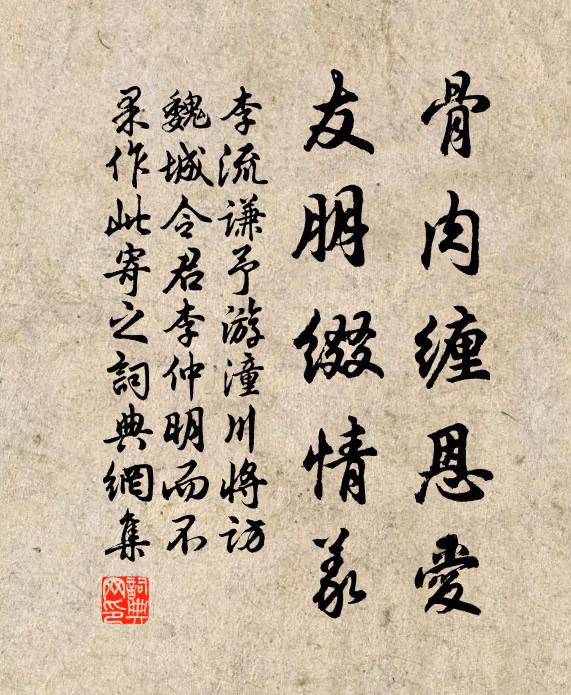 骨肉缠恩愛
友朋缀情義
李流謙予游潼川將訪
魏城令君李仲明而不
果作此寄之詞典網集
詞典
网印